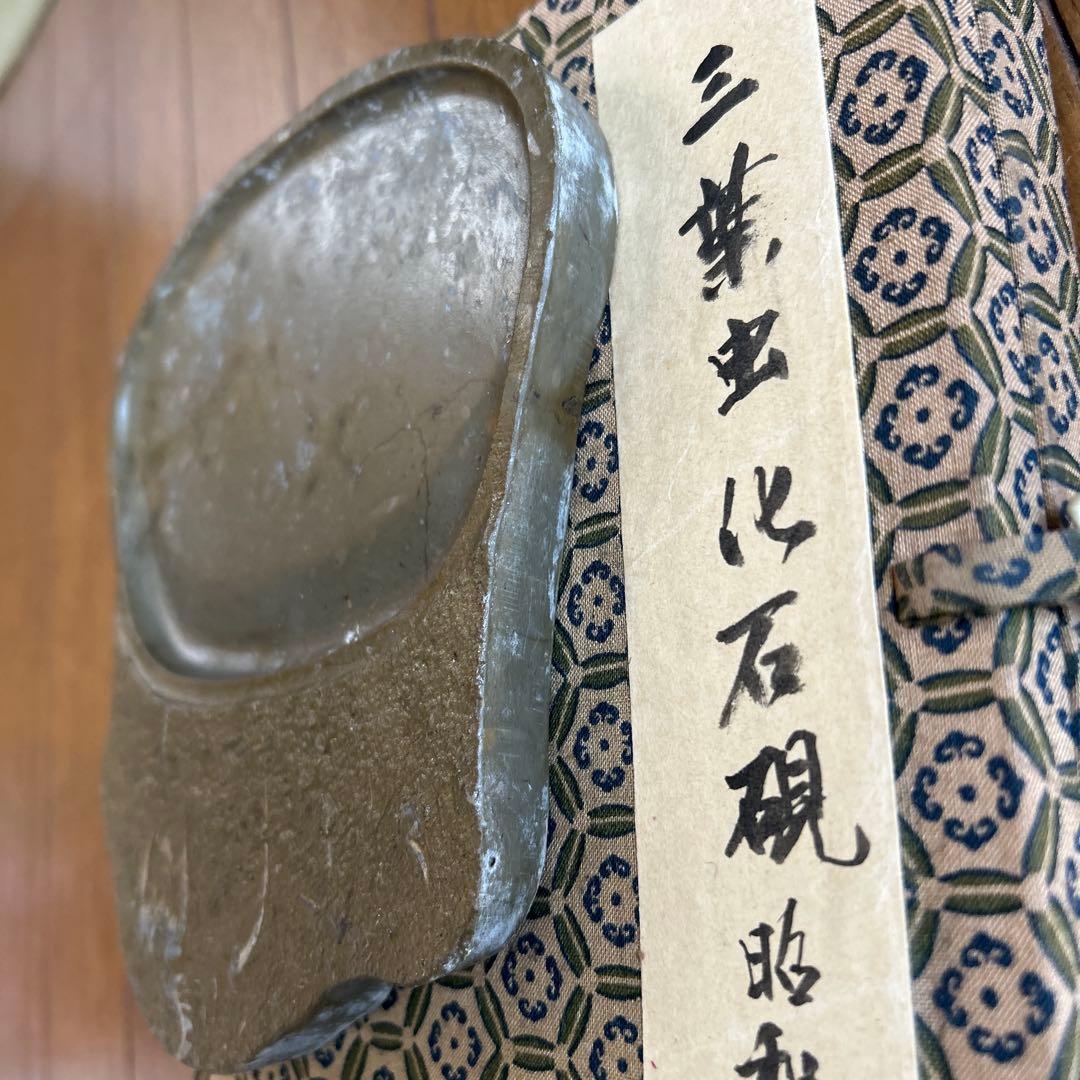 三葉虫化石硯 昭和